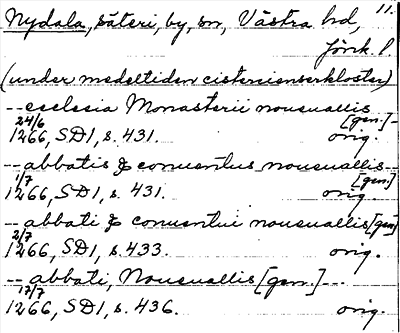 11.
Nydala, säteri, by, sn, Västra hd,
Jönk. l.
(under medeltiden cistercienserkloster)
-- ecclesia Monasterii noueuallis
24/6 [gen.] --
1266, SD1, s. 431. orig.
-- abbatis & conuentus noueuallis --
1/7 [gen.]
1266, SD1, s. 431. orig.
-- abbati & conuentui noueuallis [gen]
2/7
1266, SD1, s. 433. orig.
-- abbati, Noueuallis [gen.] --
17/7
1266, SD1, s. 436. orig.